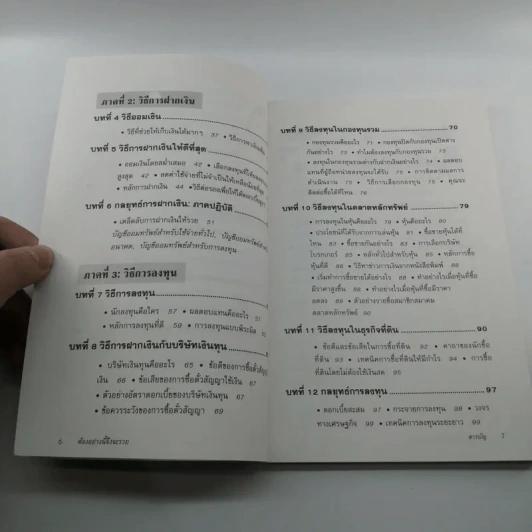 ภาคที่ 2: วิธีการฝากเงิน
บทที่ 4 วิธีออมเงิน
• วิธีที่ช่วยให้เก็บเงินได้มากๆ 37
บทที่ 5 วิธีการฝากเงินให้ดีที่สุด
• ออมเงินโดยสม่ำเสมอ 42
สูงสุด 44
• หลักการฝากเงิน 44
บทที่ 6 กลยุทธ์การฝากเงิน: ภาคปฏิบัติ
• เคล็ดลับการฝากเงินให้รวย 51
บัญชีออมทรัพย์สำหรับใช้จ่ายทั่วไป, บัญชีออมทรัพย์สำหรับ
อนาคต, บัญชีออมทรัพย์สำหรับการลงทุน
ภาคที่ 3: วิธีการลงทุน
บทที่ 7 วิธีการลงทุน
• นักลงทุนคือใคร 57 • ผลตอบแทนคืออะไร
• หลักการลงทุนที่ดี 59 • การลงทุนแบบพีระมิด
บทที่ 8 วิธีการฝากเงินกับบริษัทเงินทุน
• บริษัทเงินทุนคืออะไร 65 • ข้อดีของการซื้อตั๋วสัญญาใช้
เงิน 66 • ข้อเสียของการซื้อตั๋วสัญญาใช้เงิน 67
• ตัวอย่างอัตราดอกเบี้ยของบริษัทเงินทุน
• ข้อควรระวังของการซื้อตั๋วสัญญา 69
6 ต้องอย่างนี้จึงจะรวย
บทที่ 9 วิธีลงทุนในกองทุนรวม 70
• กองทุนรวมคืออะไร 71 • กองทุนปิดกับกองทุนเปิดต่าง
กันอย่างไร 73 • ทำไมต้องลงทุนกับกองทุนรวม 73
• ลงทุนในกองทุนรวมต่างกับฝากเงินอย่างไร 74 • ผลตอบ
แทนที่ผู้ถือหน่วยลงทุนจะได้รับ 75 • การติดตามผลการ
ดำเนินงาน 75 • วิธีการเลือกกองทุน 76 • คุณจะ
ติดต่อซื้อได้ที่ไหน
บทที่ 10 วิธีลงทุนในตลาดหลักทรัพย์ 79
• การลงทุนในหุ้นคืออะไร 79 • หุ้นคืออะไร 81
• ประโยชน์ที่ได้รับจากการเล่นหุ้น 81 • ซื้อขายหุ้นได้ที่
ไหน 81 • ซื้อขายกันอย่างไร • การเลือกบริษัท
โบรกเกอร์ • หลักทั่วไปสำหรับหุ้น • หลักการซื้อ
หุ้นที่ดี 86 • วิธีหาข่าวการเงินจากหนังสือพิมพ์
• เริ่มทำการซื้อขายได้อย่างไร • ทำอย่างไรเมื่อหุ้นที่ซื้อ
มีราคาสูงขึ้น • ทำอย่างไรเมื่อหุ้นที่ซื้อมีราคา
ลดลง • ตัวอย่างรายชื่อสมาชิกสมาคม
ตลาดหลักทรัพย์
บทที่ 11 วิธีลงทุนในธุรกิจที่ดิน 90
• ข้อดีและข้อเสียในการซื้อที่ดิน 92 • คาถาของนักซื้อ
ที่ดิน 93 • เทคนิคการซื้อที่ดินให้มีกำไร 94 • การซื้อ
ที่ดินโดยไม่ต้องใช้เงินสด 95
บทที่ 12 กลยุทธ์การลงทุน 97
• ดอกเบี้ยสะสม • กระจายการลงทุน • วงจร
ทางเศรษฐกิจ 99 • เทคนิคการลงทุนระยะยาว 99
สารบัญ 7